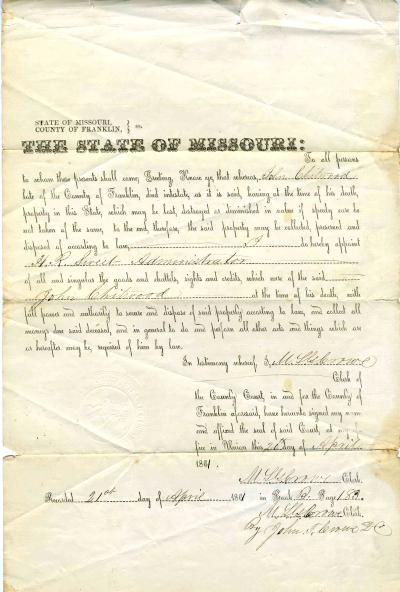 STATE OF MISSOURI,
COUNTY OF FRANKLIN, } ss.
THE STATE OF MISSOURI:
To all persons
to whom these presents shall come, Greeting, Know ye, that whereas, John Chitwood
late of the County of Franklin, died intestate, as it is said, having at the time of his death,
property in this State, which may be lost, destroyed or diminished in value if speedy care be
not taken of the same, to the end, therefore, the said property may be collected, preserved and
disposed of according to law, I do hereby appoint
Administrator
of all and singular the goods and chattels, rights and credits, which were of the said
John Chitwood at the time of his death, with
full power and authority to secure and dispose of said property according to law, and collect all
moneys due said deceased, and in general to do and perform all other acts and things which are
or hereafter may be, required of him by law.
In testimony whereof I,
Clerk of
the County Court in and for the County of
Franklin aforesaid, have hereunto signed my name
and affixed the seal of said Court, at my of-
fice in Union this day of April
1861.
Clerk.
Recorded 21st day of April 1861 in Book B, Page 183.
Clerk.
By John